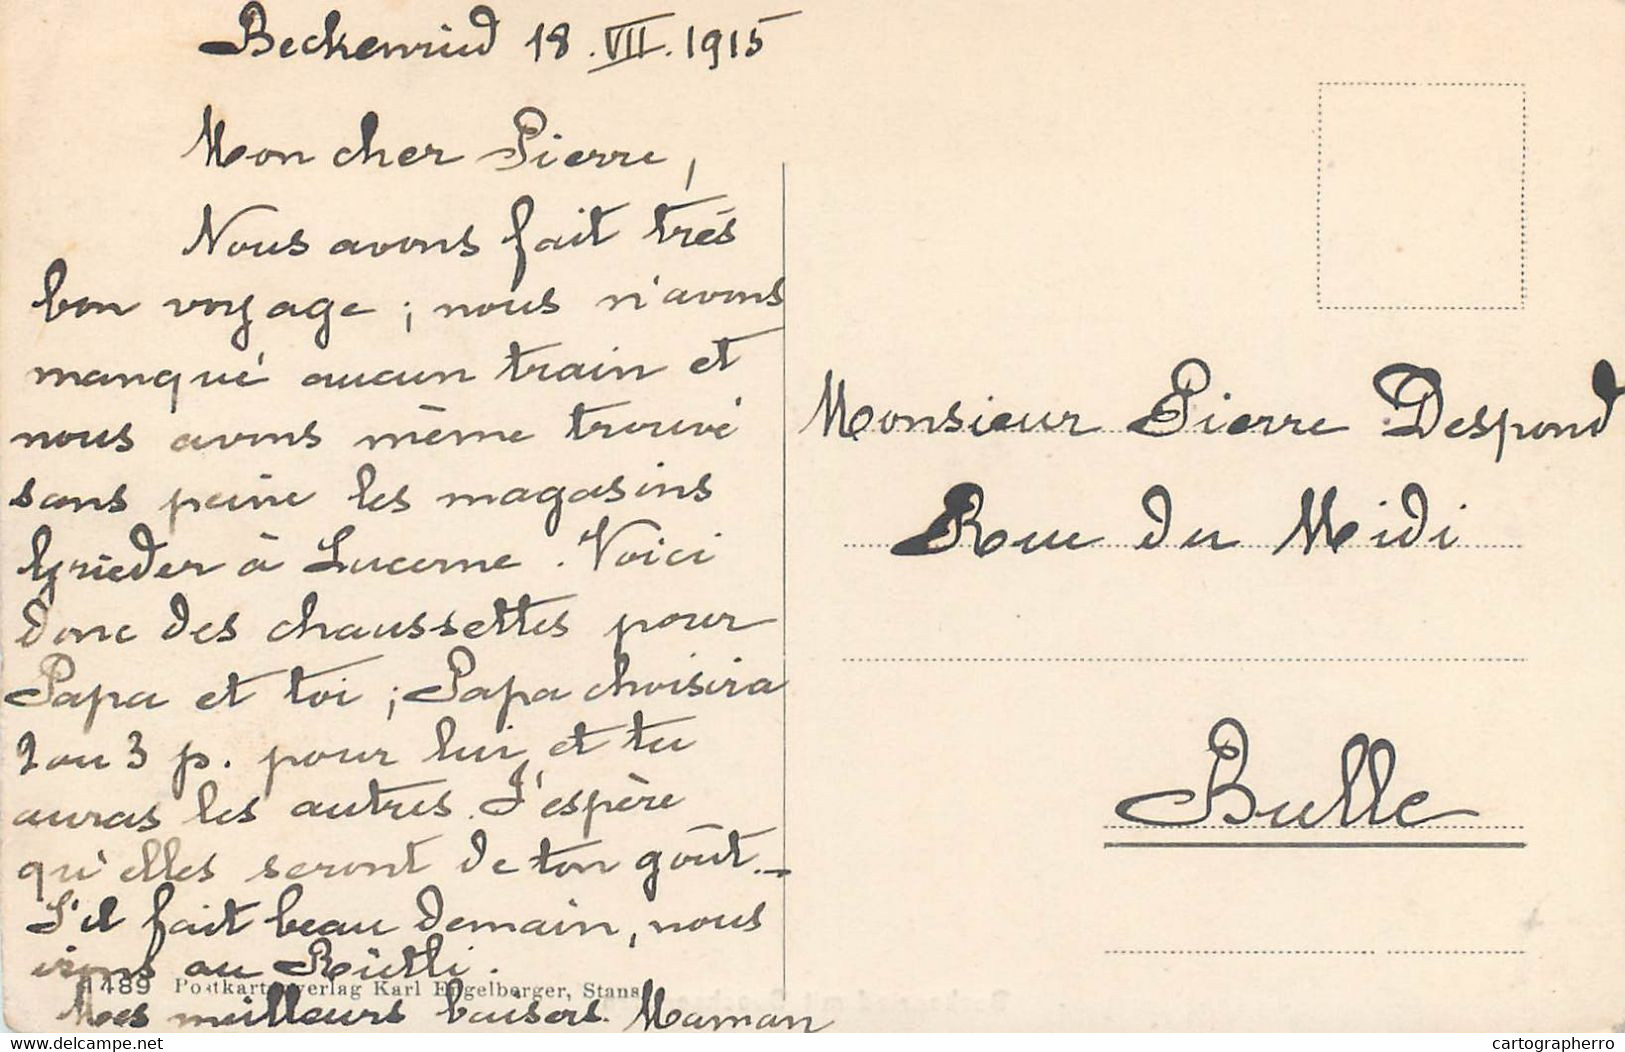 Beckenried 18.VII.1915
Mon cher Pierre,
Nous avons fait très
bon voyage ; nous n'avons
manqué aucun train et
nous avons même trouvé
sans peine les magasins
Grieder à Lucerne. Voici
donc des chaussettes pour
Papa et toi ; Papa choisira
2 ou 3 p. pour lui, et tu
auras les autres. J'espère
qu'elles seront de ton goût.—
S'il fait beau demain, nous
irons au Rütli.
1489 Postkartenverlag Karl Engelberger, Stans
Mes meilleurs baisers. Maman
Monsieur Pierre Despond
Rue du Midi
Bulle
delcampe.net
cartographerro